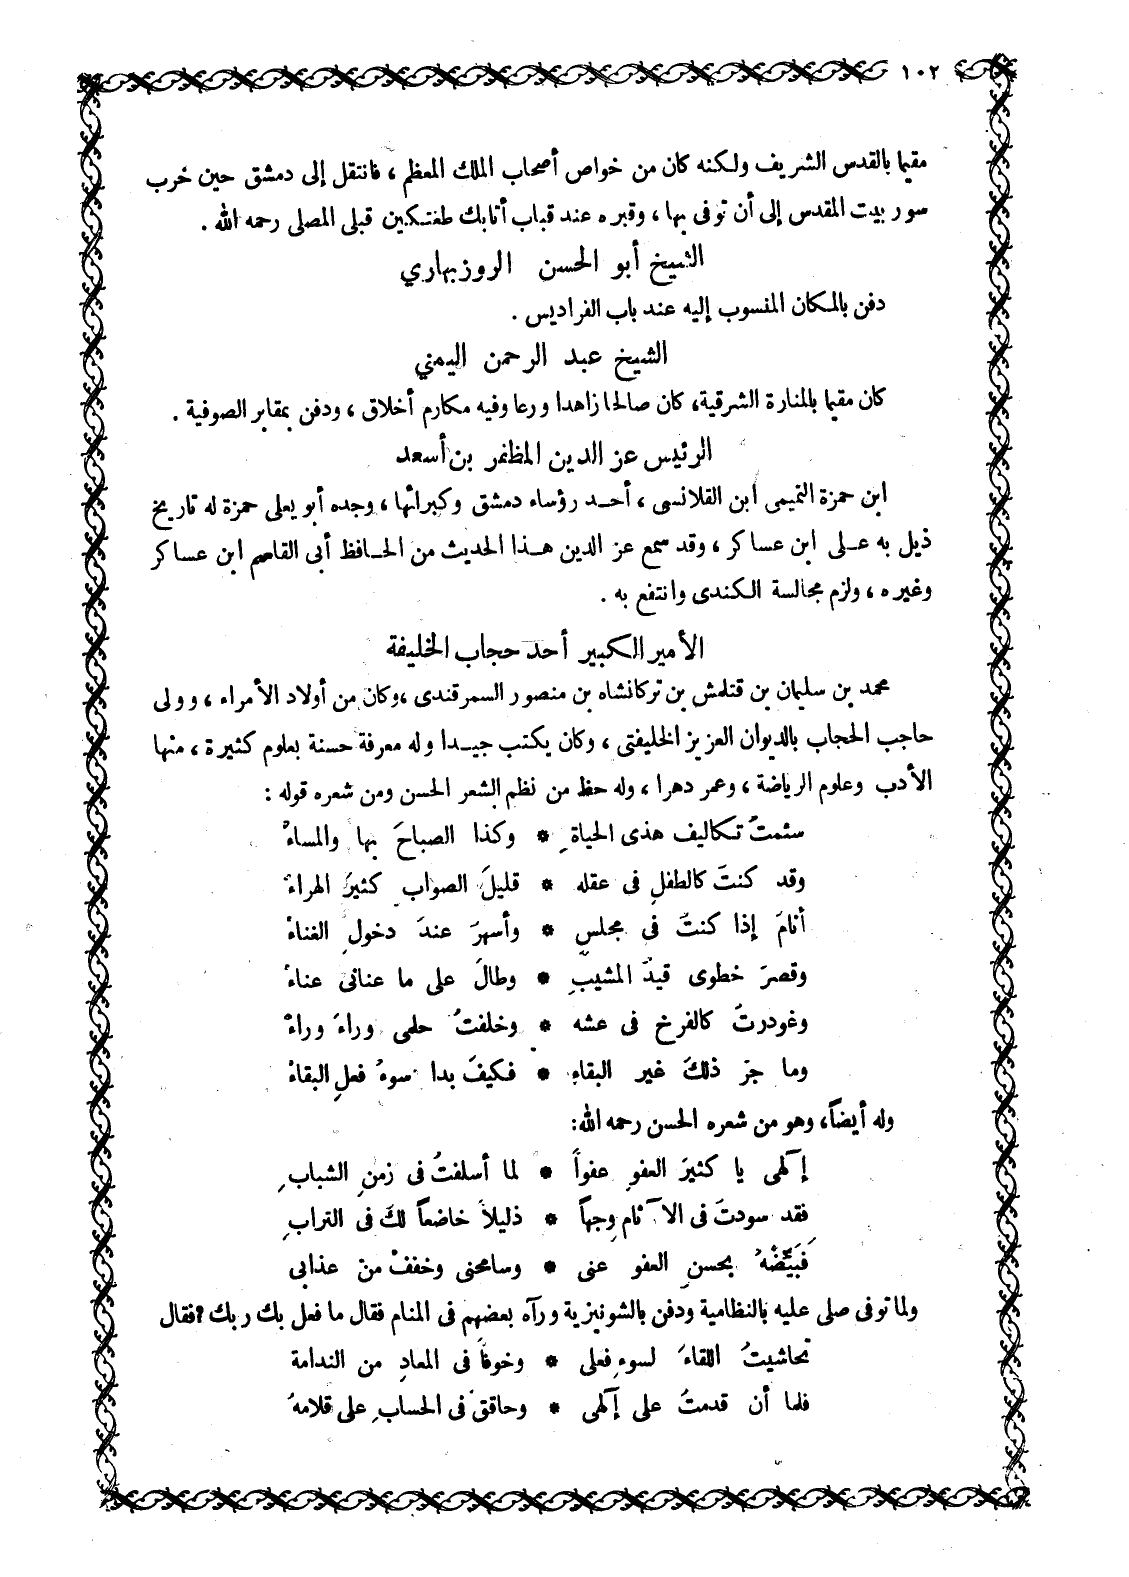 ١٠٢
مقيما بالقدس الشريف ولكنه كان من خواص أصحاب الملك المعظم ، فانتقل إلى دمشق حين خرب
سور بيت المقدس إلى أن توفى بها ، وقبره عند قباب أتابك طغتكين قبلى المصلى رحمه الله .
الشيخ أبو الحسن الروزبهاري
دفن بالمكان المنسوب إليه عند باب الفراديس .
الشيخ عبد الرحمن اليمني
كان مقيما بالمنارة الشرقية، كان صالحا زاهدا ورعا وفيه مكارم أخلاق ، ودفن بمقابر الصوفية .
الرئيس عز الدين المظفر بن أسعد
ابن حمزة التميمى ابن القلانسى ، أحد رؤساء دمشق وكبرائها ، وجده أبو يعلى حمزة له تاريخ
ذيل به على ابن عساكر ، وقد سمع عز الدين هذا الحديث من الحافظ أبى القاسم ابن عساكر
وغيره ، ولزم مجالسة الكندى وانتفع به .
الأمير الكبير أحد حجاب الخليفة
محمد بن سليمان بن قتلمش بن تركانشاه بن منصور السمرقندى ،وكان من أولاد الأمراء ، وولى
حاجب الحجاب بالديوان العزيز الخليفتى ، وكان يكتب جيدا وله معرفة حسنة بعلوم كثيرة ، منها
الأدب وعلوم الرياضة ، وعمر دهرا ، وله حظ من نظم الشعر الحسن ومن شعره قوله :
سئمتُ تكاليف هذى الحياةِ * وكذا الصباحَ بها والمساءْ
وقد كنتَ كالطفلِ فى عقله * قليلَ الصوابِ كثيرَ الهراءْ
أنامَ إذا كنتُ فى مجلسٍ * وأسهرَ عندَ دخولِ الغناءْ
وقصرَ خطوى قيدُ المشيبِ * وطالَ على ما عنانى عناءْ
وغودرتُ كالفرخ فى عشه * وخلفتُ حلمى وراءَ وراءْ
وما جرّ ذلكَ غير البقاءِ * فكيفَ بدا سوءُ فعلِ البقاءْ
وله أيضاً، وهو من شعره الحسن رحمه الله:
إلٓهى يا كثيرَ العفوِ عفواً * لما أسلفتُ فى زمنِ الشبابِ
فقد سودتَ فى الآثامِ وجهاً * ذليلاً خاضعاً لكَ فى الترابِ
فَبَيِّضْهُ بحسنِ العفوِ عنى * وسامحنى وخففْ منْ عذابى
ولما توفى صلى عليه بالنظامية ودفن بالشونيزية ورآه بعضهم فى المنام فقال ما فعل بك ربك ؟فقال
تحاشيتُ اللقاءَ لسوءِ فعلى * وخوفاً فى المعادِ من الندامة
فلما أن قدمتُ على إلٓهى * وحاققَ فى الحسابِ على قلامهُ